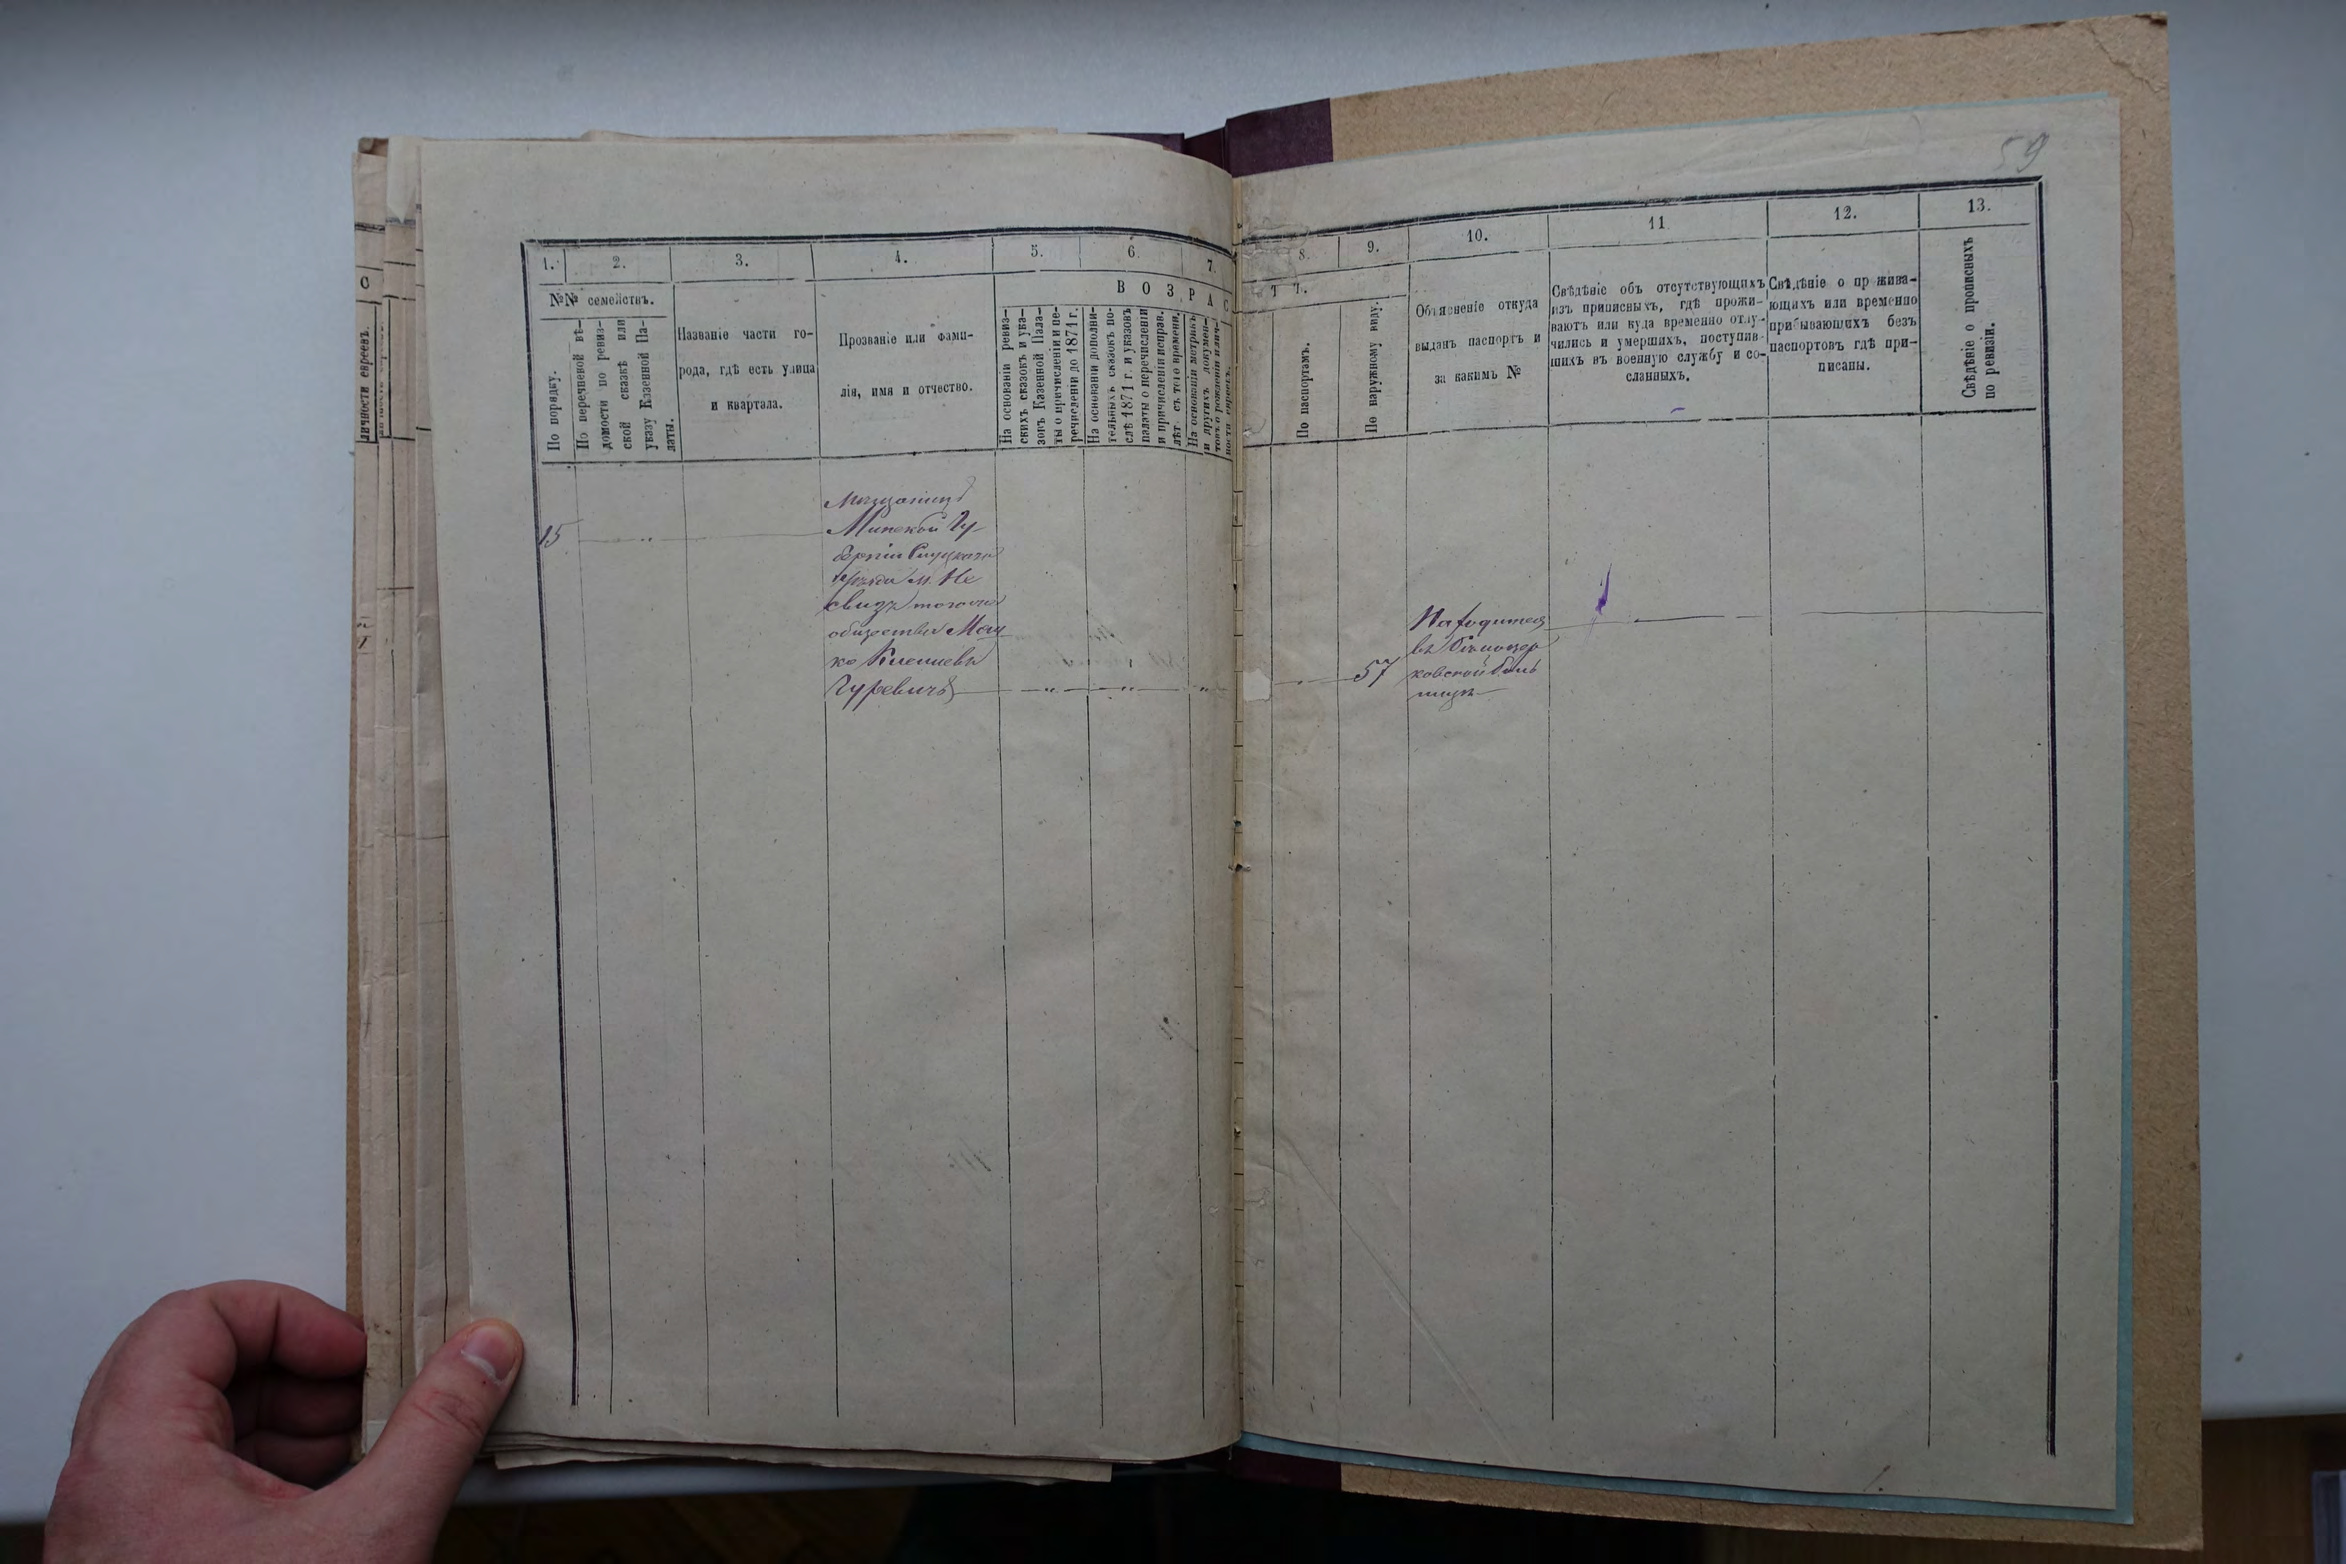 59
1.
2.
3.
4.
5.
6.
7.
8.
9.
10.
11
12.
13.
№№ семействъ.
В О З Р А С
Т Ъ.
По порядку.
По перечневой вѣ-
домости по ревиз-
ской сказкѣ или
указу Казенной Па-
латы.
Названіе части го-
рода, гдѣ есть улица
и квартала.
Прозваніе или фами-
лія, имя и отчество.
На основаніи ревиз-
скихъ сказокъ и ука-
зовъ Казенной Пала-
ты о причисленіи и пе-
речисленіи до 1871 г.
На основаніи дополни-
тельныхъ сказокъ по-
слѣ 1871 г. и указовъ
палаты о перечисленіи
и причисленіи исправ.
лѣтъ съ того времени.
На основаніи метрикъ
и другихъ докумен-
товъ о рожденіи и лич-
ности евреевъ.
По паспортамъ.
По наружному виду.
Объясненіе откуда
выданъ паспортъ и
за какимъ №
Свѣдѣніе объ отсутствующихъ
изъ приписныхъ, гдѣ прожи-
ваютъ или куда временно отлу-
чились и умершихъ, поступив-
шихъ въ военную службу и со-
сланныхъ.
Свѣдѣніе о прожива-
ющихъ или временно
прибывающихъ безъ
паспортовъ гдѣ при-
писаны.
Свѣдѣніе о прописныхъ
по ревизіи.
личности евреевъ.
С
15
Мѣщанинъ
Минской Гу-
берніи Слуцкаго
уѣзда м. Не
свижъ того же
общества
Гуревичъ
57
Находится
въ Бѣлоцер
ковской боль
ницѣ